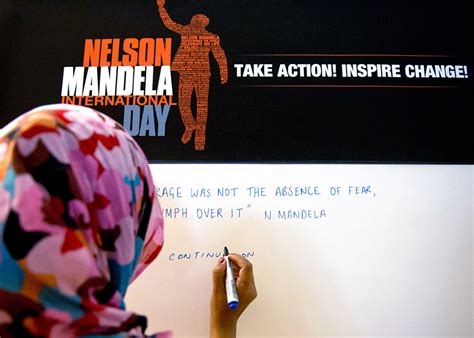 NELSON
MANDELA
INTERNATIONAL
DAY
TAKE ACTION! INSPIRE CHANGE!
RAGE WAS NOT THE ABSENCE OF FEAR,
MPH OVER IT". N.MANDELA